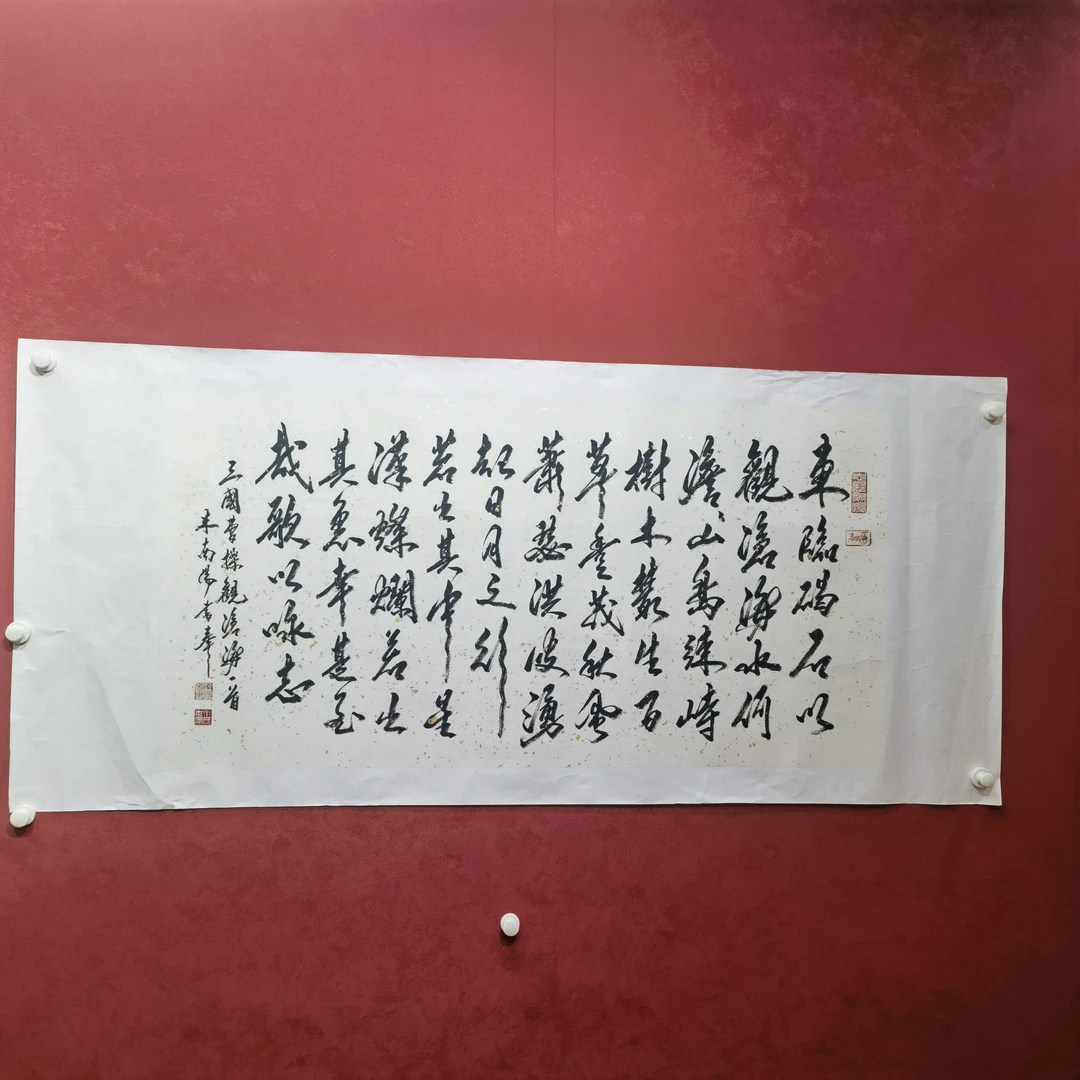 東臨碣石以
觀滄海水何
澹々山島竦峙
樹木叢生百
草豐茂秋風
蕭瑟洪波湧
起日月之行
若出其中星
漢燦爛若出
其裏幸甚至
哉歌以咏志
三國曹操觀滄海一首
南陽書